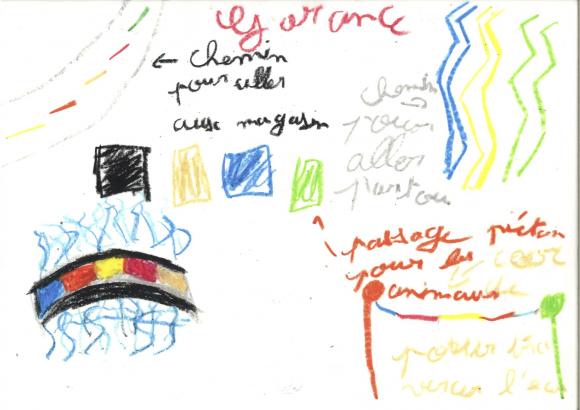 Garance
← chemin
pour aller
aux magasin
chemin
pour
aller
partou
passage piéton
pour les
animaux
pour
l'eau